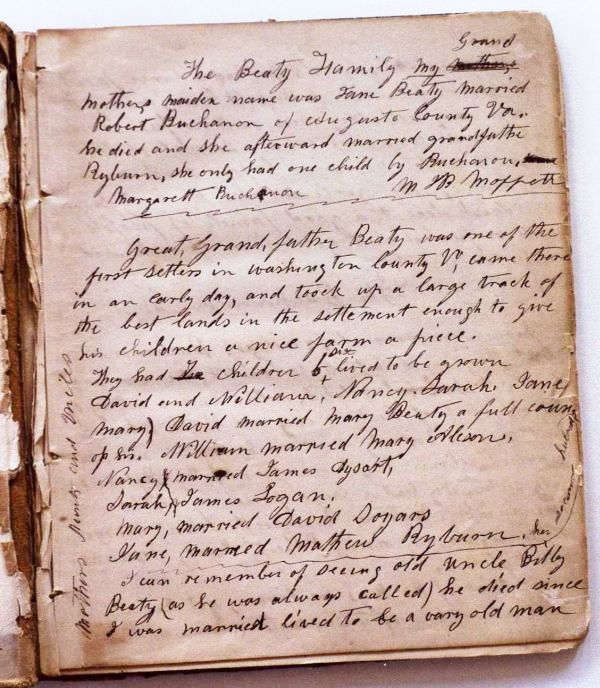 Grand
The Beaty Family my mothers
mothers maiden name was Jane Beaty married
Robert Buchanon of Augusta County Va.
he died and she afterward married grandfathe
Ryburn, she only had one child by Buchanon,
Margarett Buchanon M B Moffett
Great, Grand, father Beaty was one of the
first setlers in washington County Va, came there
in an early day, and toock up a large track of
the best lands in the setlement enough to give
his children a nice farm a piece.
They had children 6 six lived to be grown
David and William, Nancy. Sarah. Jane
Mary) David married Mary Beaty a full cousin
of his. William married Mary
Nancy married James Dysart,
Sarah) James Logan.
Mary, married David Sogars
Jane, married Mathew Ryburn. her
second husband
I can remember of seeing old uncle Billy
Beaty (as he was always called) he died since
I was married lived to be a vary old man
Mothers Aunts and Uncles